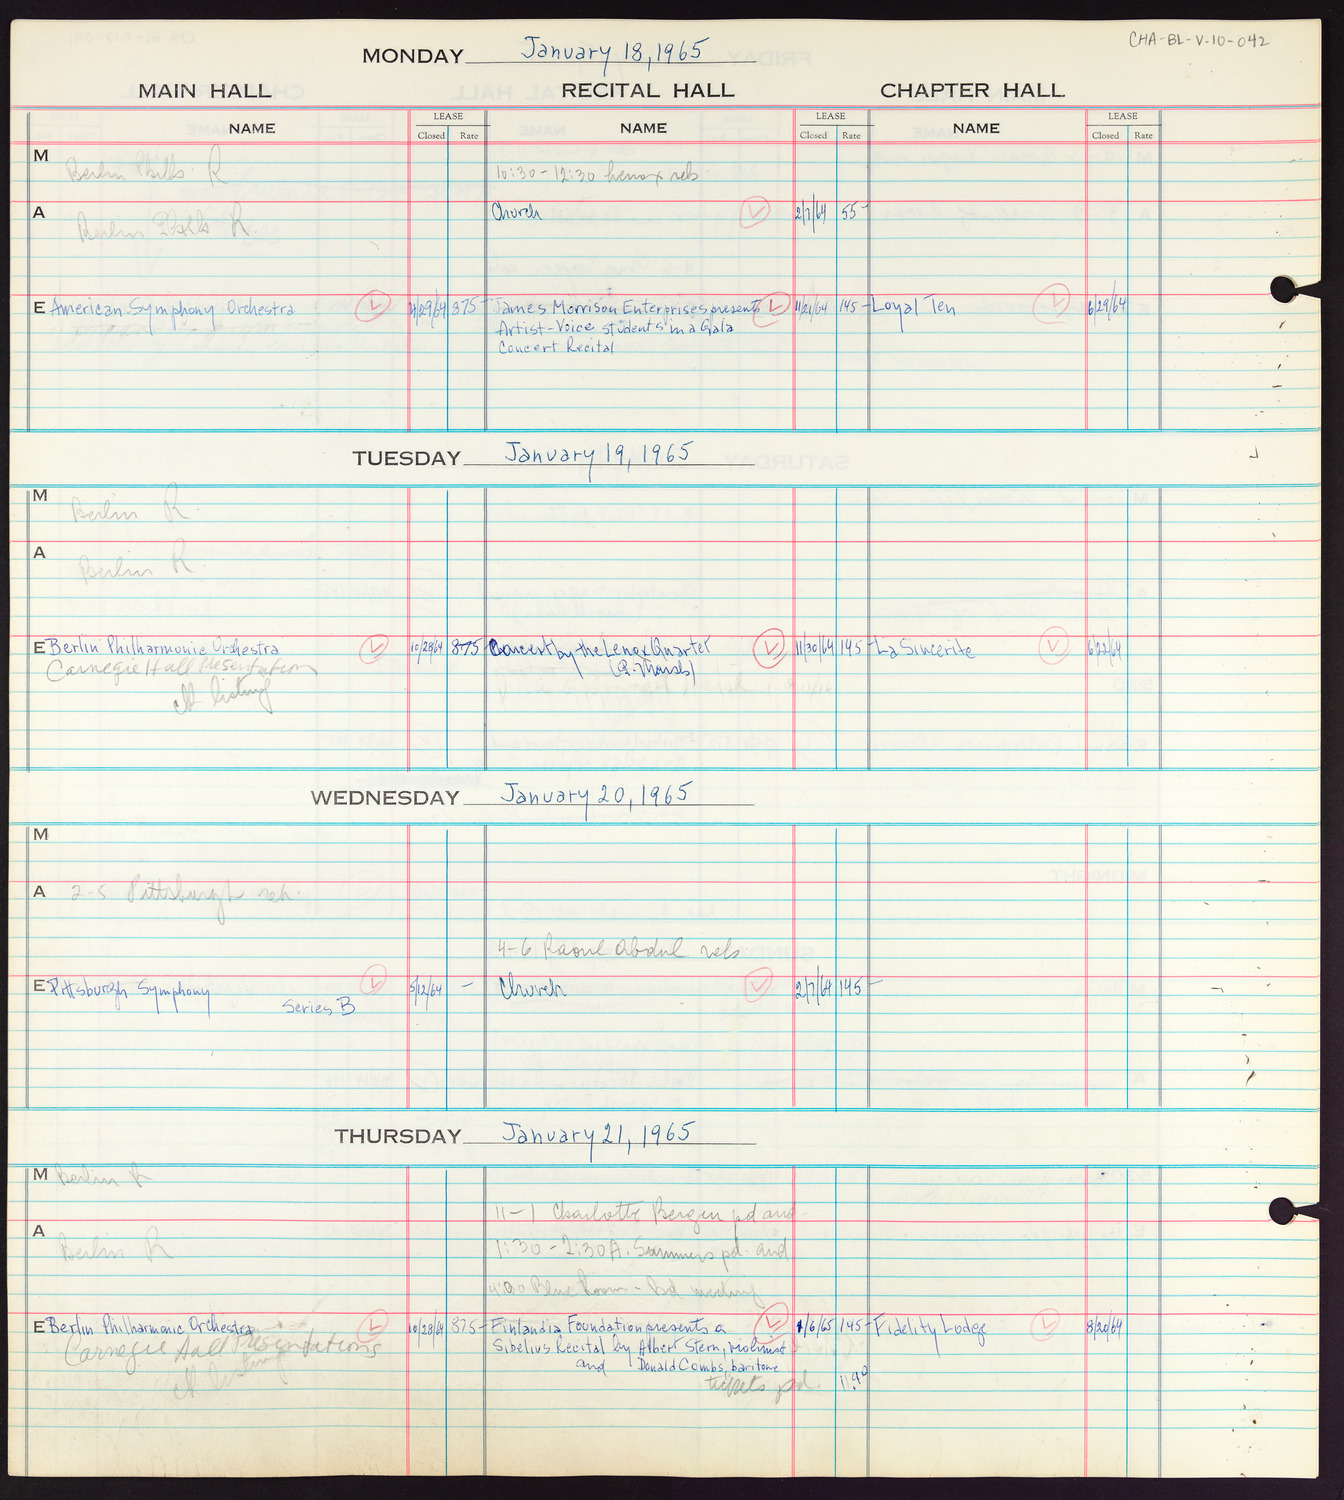 CHA-BL-V-10-042
MONDAY January 18, 1965
MAIN HALL RECITAL HALL CHAPTER HALL
NAME LEASE Closed Rate NAME LEASE Closed Rate NAME LEASE Closed Rate
M
Berlin Phills R 10:30-12:30 Lenox reh
A
Berlin R Church 2/7/64 55-
E American Symphony Orchestra 4/29/64 875- James Morrison Enterprises presents 11/21/64 145- Loyal Ten 6/29/64
Artist-Voice students in a Gala
Concert Recital
TUESDAY January 19, 1965
M
Berlin R
A
Berlin R
E Berlin Philharmonic Orchestra 10/28/64 875- Concert by the Lenox Quartet 11/30/64 145- La Sincerite 6/22/64
Carnegie Hall Presentation
CH listing
WEDNESDAY January 20, 1965
M
A 2-5 Pittsburgh reh.
4-6 Raoul Abdul reh
E Pittsburgh Symphony 5/12/64 - Church 2/7/64 145-
Series B
THURSDAY January 21, 1965
M Berlin R
11-1 Charlotte Bergen pd and
A
Berlin R 1:30-2:30 A. Summers pd. and
4:00 Blue Room - Bd meeting
E Berlin Philharmonic Orchestra 10/28/64 875- Finlandia Foundation presents a 1/6/65 145- Fidelity Lodge 8/20/64
Carnegie Hall Presentations Sibelius Recital by Albert Stern, violinist
and Donald Combs, baritone
CH listing tickets pd.